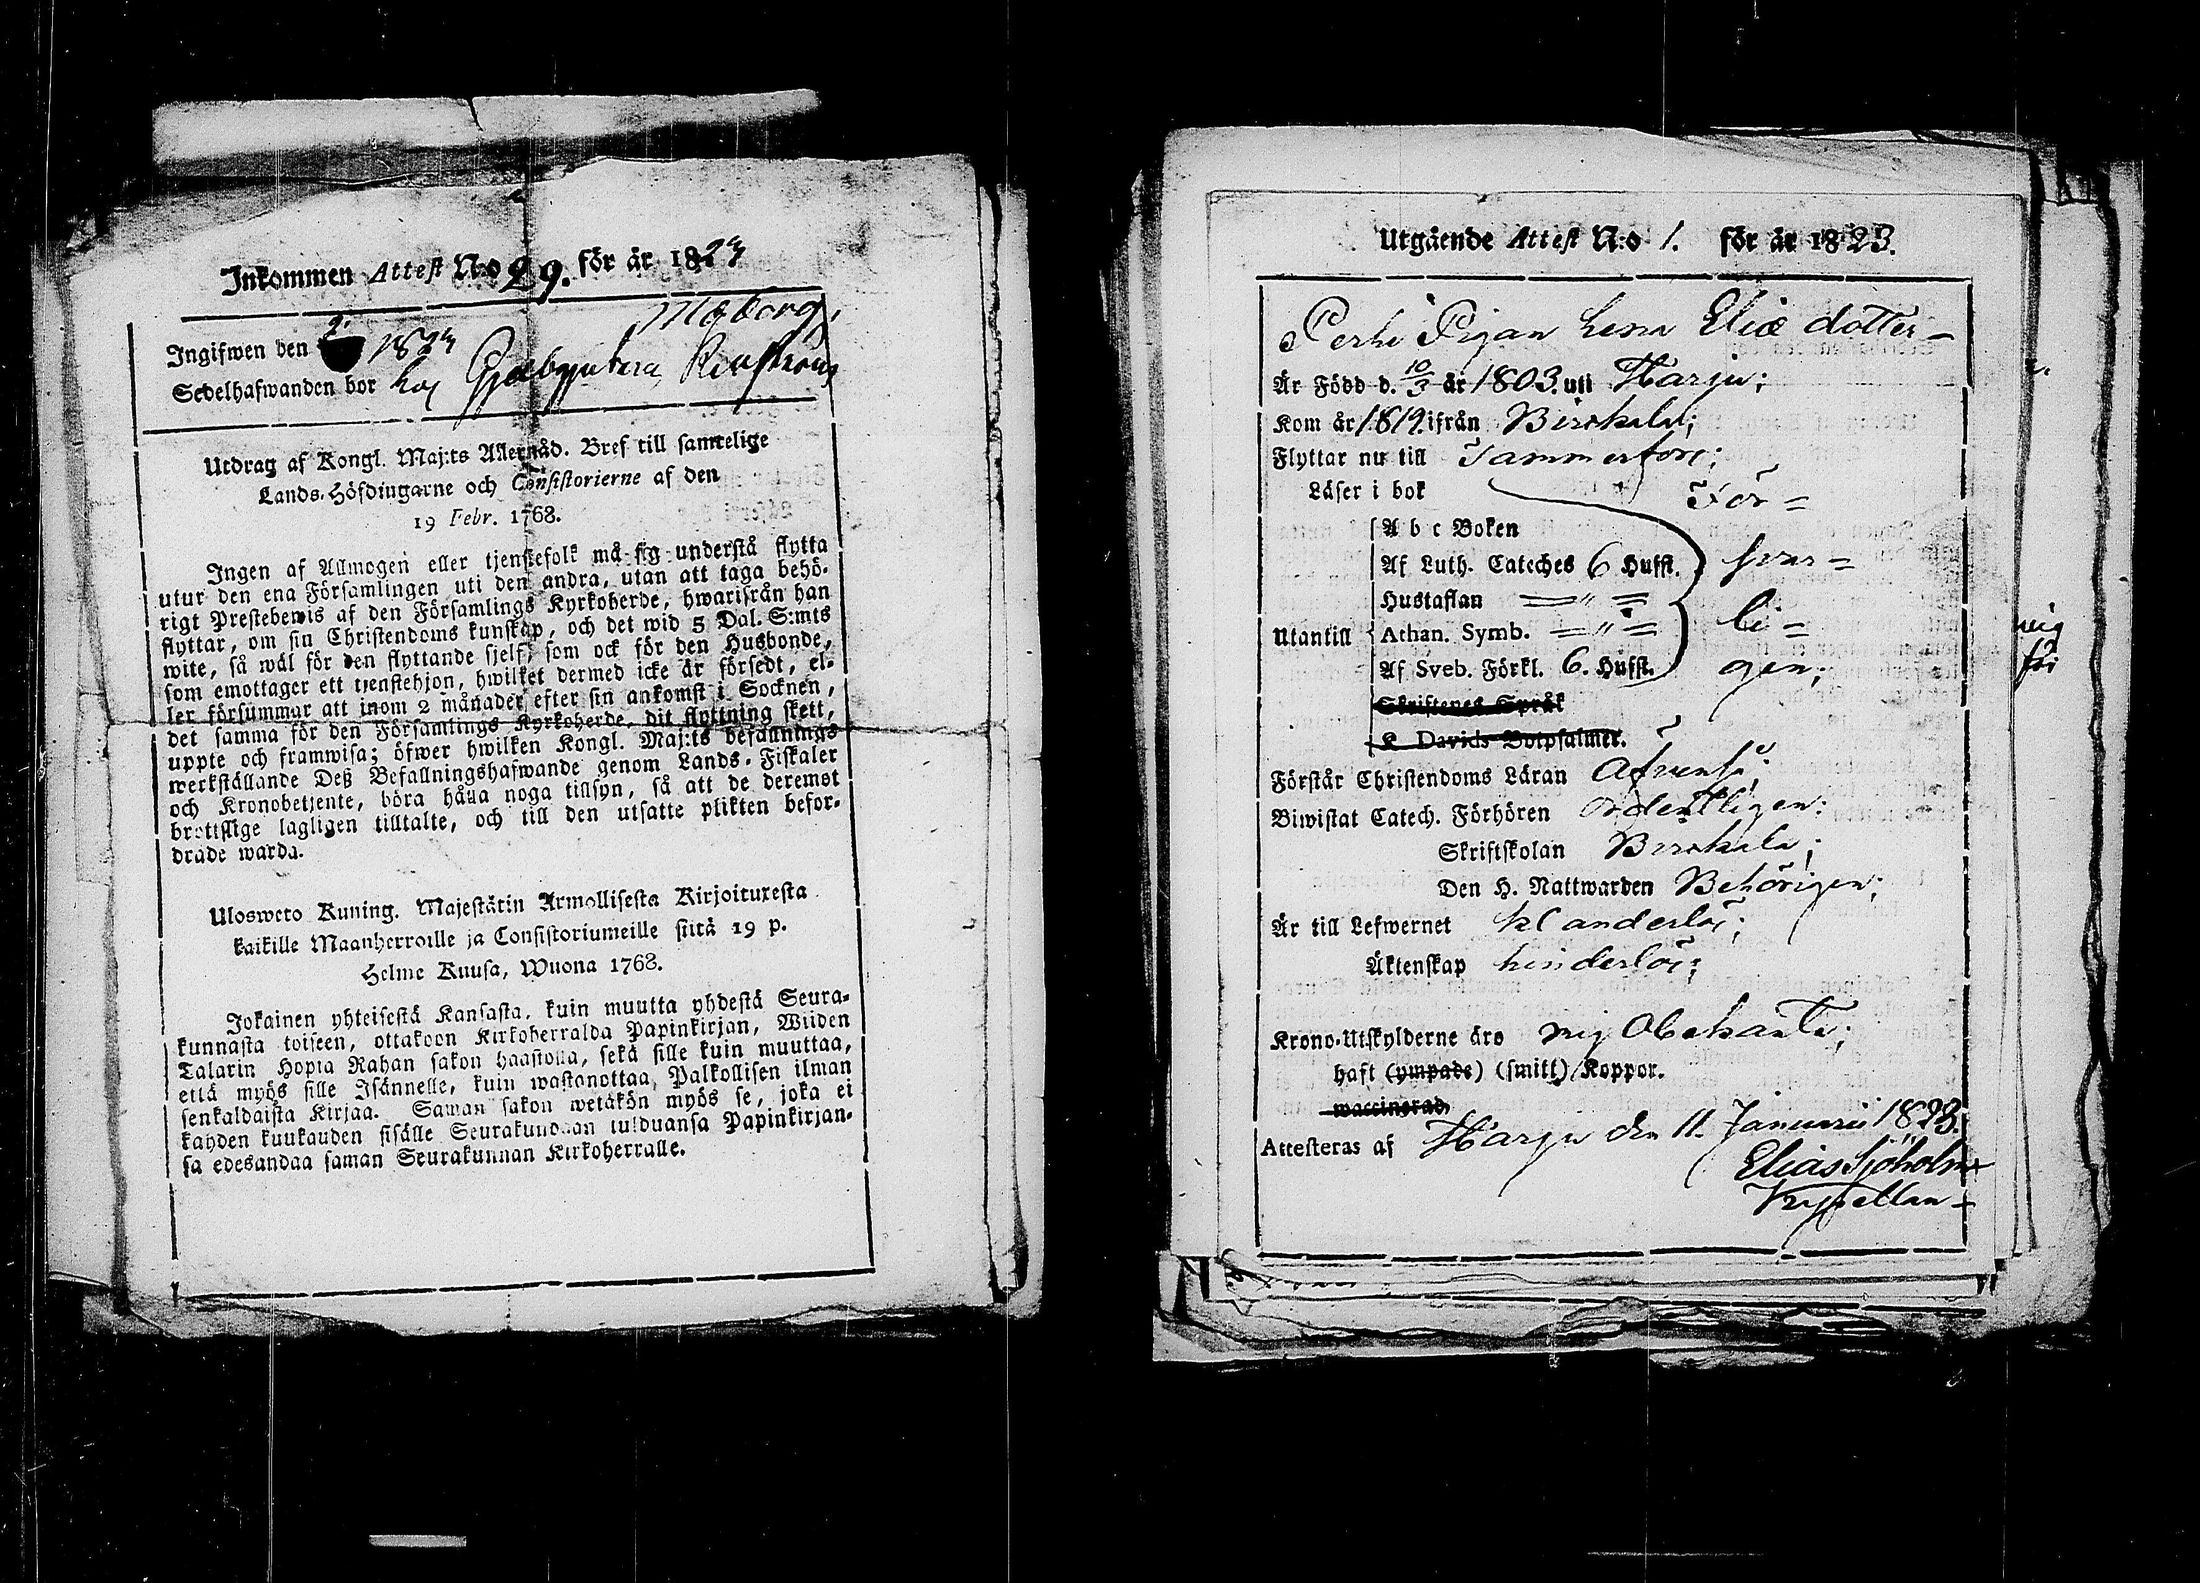 Inkommen Attest N:o 29. för år 1823
Ingifwen den 2. 1823
Sedelhafwanden bor hos
Utdrag af Kongl. Maj:ts Allernåd. Bref till samtelige
Lands-Höfdingarne och Consistorierne af den
19 Febr. 1768.
Ingen af Allmogen eller tjenstefolk må sig understå flytta
utur den ena Församlingen uti den andra, utan att taga behö-
rigt Prestebewis af den Församlings Kyrkoherde, hwarifrån han
flyttar, om sin Christendoms kunskap, och det wid 5 Dal. S:mts
wite, så wäl för den flyttande sjelf, som ock för den Husbonde,
som emottager ett tjenstehjon, hwilket dermed icke är försedt, el-
ler försummar att inom 2 månader efter sin ankomst i Socknen,
det samma för den Församlings Kyrkoherde, dit flyttning skett,
uppte och framwisa; öfwer hwilken Kongl. Maj:ts befallnings
werkställande Deß Befallningshafwande genom Lands-Fiskaler
och Kronobetjente, böra hålla noga tillsyn, så att de deremot
brottslige lagligen tilltalte, och till den utsatte plikten befor-
drade warda.
Ulosweto Kuning. Majestätin Armollisesta Kirjoituxesta
kaikille Maanherroille ja Consistoriumeille siitä 19 p.
Helme Kuusa, Wuona 1768.
Jokainen yhteisestä Kansasta, kuin muutta yhdestä Seura-
kunnasta toiseen, ottakoon Kirkoherralda Papinkirjan, Wiiden
Talarin Hopia Rahan sakon haastolla, sekä sille kuin muuttaa,
että myös sille Isännelle, kuin wastanottaa, Palkollisen ilman
senkaldaista Kirjaa. Saman sakon wetäkön myös se, joka ei
kahden kuukauden sisälle Seurakundaan tulduansa Papinkirjan-
sa edesandaa saman Seurakunnan Kirkoherralle.
Utgående Attest N:o 1. för år 1823.
Pigan Lena Eliæ dotter
Är Född d. 10/3 år 1803. uti Harju;
Kom år 1819. ifrån Birckala;
Flyttar nu till Tammerfors;
Läser i bok För=
A b c Boken
Af Luth. Cateches 6 Hufst. svar=
Hustaflan =〃=
Utantill Athan. Symb. =〃= li=
Af Sveb. Förkl. 6. Hufst. gen;
Skriftenes Språk
K Davids Botpsalmer.
Förstår Christendoms Läran Äfvenså;
Biwistat Catech. Förhören Ordentligen;
Skriftskolan Birckala;
Den H. Nattwarden Behörigen;
Är till Lefwernet klanderlös;
Äktenskap hinderlös;
Krono-Utskylderne äro mig Obekanta;
haft (ympade) (smitt) Koppor.
waccinerad
Attesteras af Harju den 11. Januarii 1823.
Elias Sjöholm
Capellan
mig
för